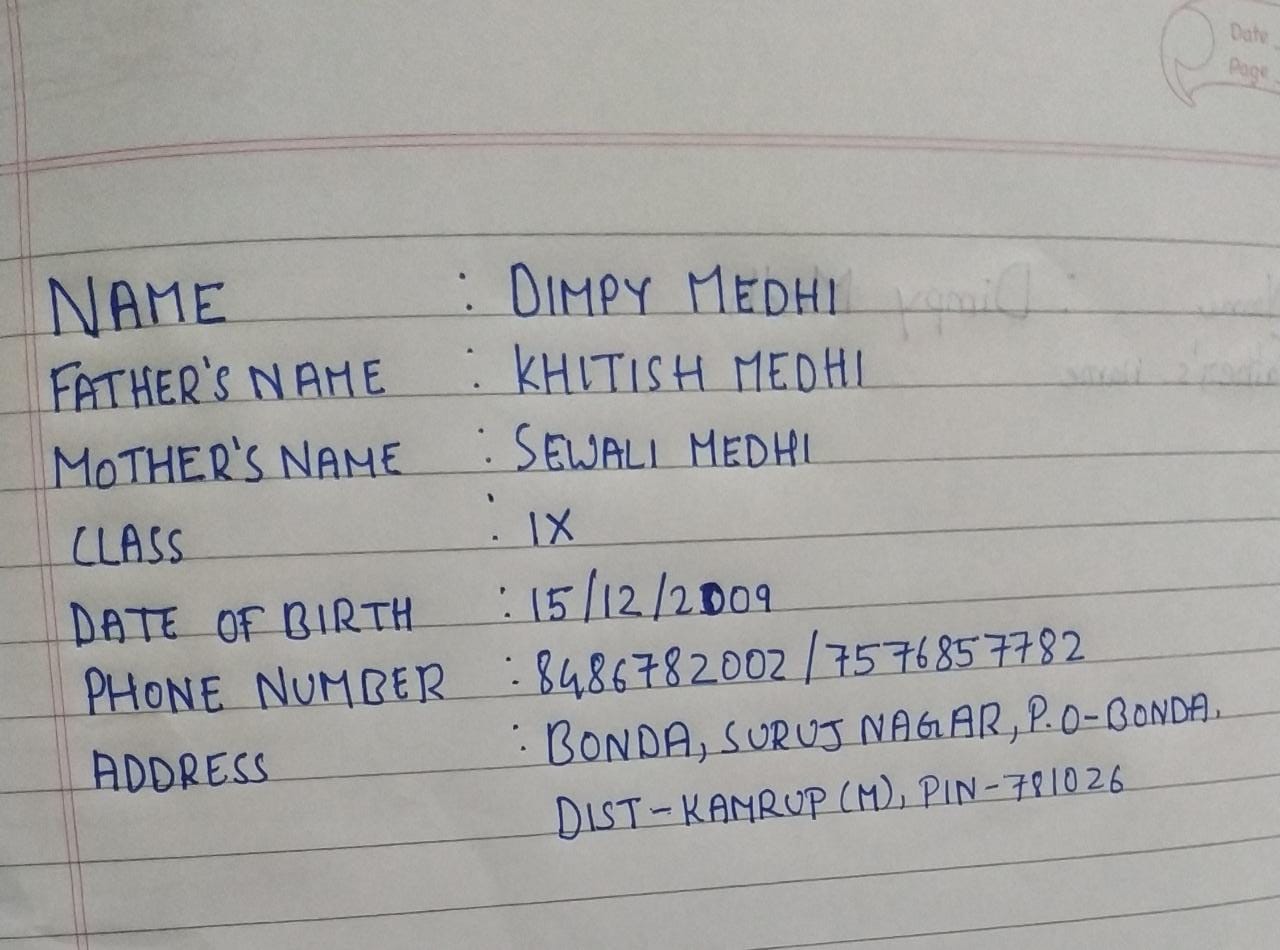 Date
Page
NAME : DIMPY MEDHI
FATHER'S NAME : KHITISH MEDHI
MOTHER'S NAME : SEWALI MEDHI
CLASS : IX
DATE OF BIRTH : 15/12/2009
PHONE NUMBER : 8486782002/7576857782
ADDRESS : BONDA, SURUJ NAGAR, P.O-BONDA.
DIST-KAMRUP (M), PIN-781026